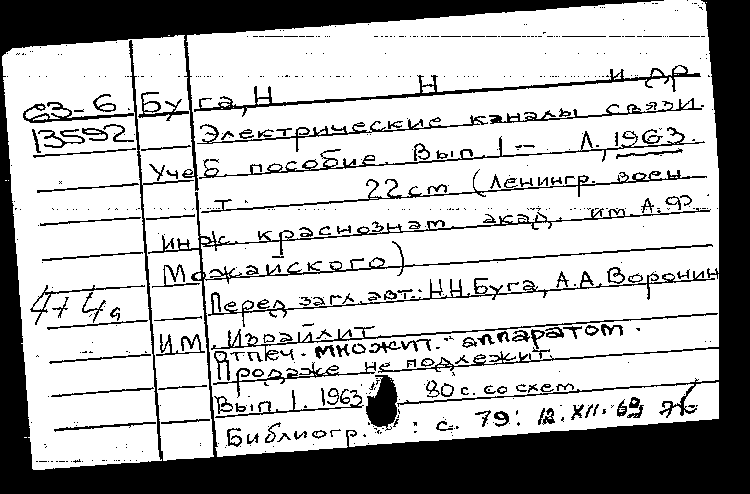 63-6 Буга, Н Н и др
13592 Электрические каналы связи.
Учеб. пособие. Вып. 1- Л., 1963.
т. 22 см (Ленингр. воен.
инж. краснознам. акад. им. А.Ф.
Можайского)
4+4а Перед загл. авт.: Н.Н. Буга, А.А. Воронин
И.М. Израйлит
отпеч. множит. аппаратом.
Продаже не подлежит.
Вып. 1. 1963. 80 с. со схем.
Библиогр.: с. 79. 12.XII.63